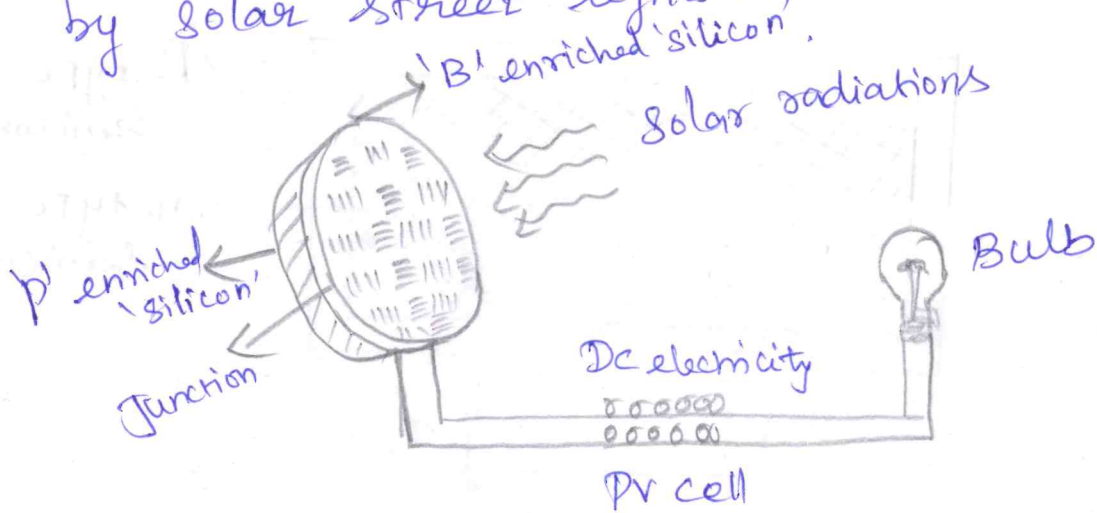 by solar street
'B' enriched 'silicon'.
solar radiations
p' enriched
'silicon'
Junction
Bulb
DC electricity
PV cell